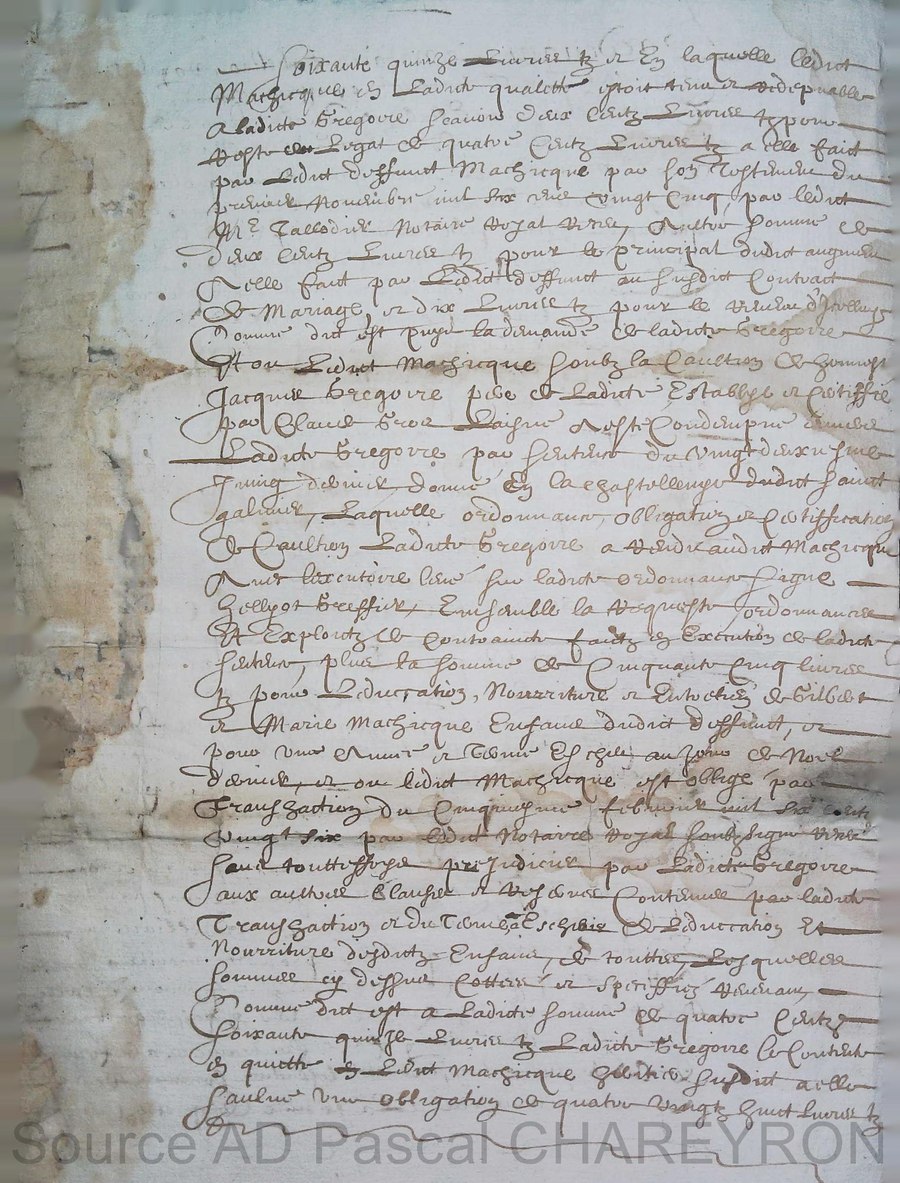 Soixante quinze Livres tz et En laquelle ledict
Machicque en Ladicte qualitté estoit tenu et Redepvable
A ladicte Gregoire scavoir deux Centz Livres tz pour
Reste du Legat de quatre Centz Livres tz a elle faict
par Ledict deffunct Machicque par son Testement du
premier Novembre mil six cens vingt Cinq, par ledict
Me Tallodier Notaire Royal Receu, Aultre somme de
deux Centz Livres tz pour le principal dudict augment
A elle faict par Ledict deffunct au susdict Contraict
de Mariage et dix Livres tz pour le Revenu d'Icelluy
Comme dict est puys la demande de ladicte Gregoire
Et ou Ledict Machicque soubz la Caultion de honnest
Jacques Gregoire pere de Ladicte Establye et Certiffié
par Claude Gros Laisné A esté Condempné envers
Ladicte Gregoire par sentence du vingt deuxiesme
Juing dernier, donné En la Chastellenye dudict sainct
galmier, Laquelle ordonnance, obligation et Certiffication
de Caultion Ladicte Gregoire a Rendu audict Machicque
Avec Lexecutoire levé sur ladicte ordonnance signé
Greffier, Ensemble la Requeste, ordonnances
Et Exploictz de Contraincte faictz en Execution de ladicte
sentence, plus la somme de Cinquante Cinq livres
tz pour Leduccation, Nourriture et Entretien de Gilbert
et Marie Machicque Enfans dudict deffunct, et
pour une Année et Terme Escheu au Jour de Noel
dernier, et ou ledict Machicque est obligé par
Transaction du Cinquiesme febvrier mil six Centz
vingt six par ledict Notaire Royal soubzsigné Receu
sans touttesfoys prejudicier par Ladicte Gregoire
aux aultres Clauses et Reserves Contenues par ladicte
Transaction et du Terme a Escheoir de Leduccation Et
Nourriture desdictz Enfans, de touttes Lesquelles
sommes cy dessus Cottées et speciffiez Revenant
Comme dict est a Ladicte somme de quatre Centz
soixante quinze Livres tz Ladicte Gregoire se Contente
en quicte Ledict Machicque heritier susdict a elle
saulve une obligation de quatre vingtz huict Livres tz
Source AD Pascal CHAREYRON